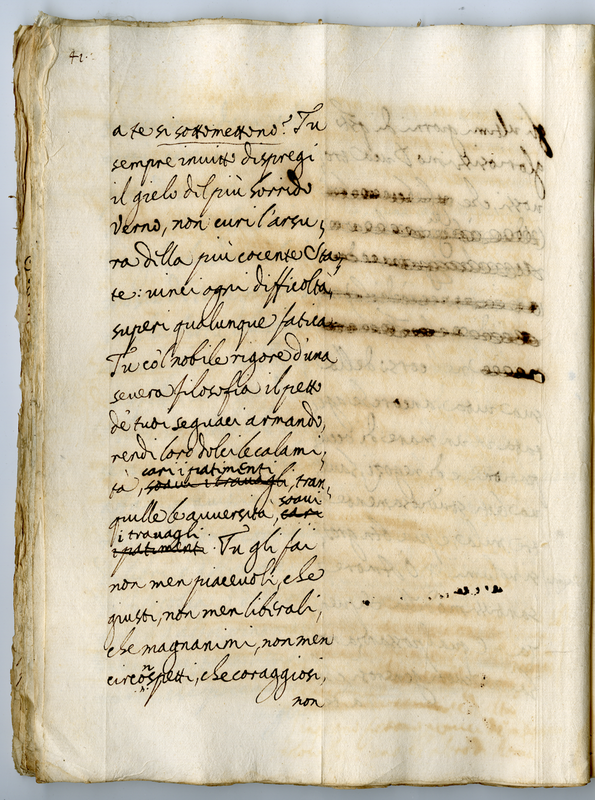 41.
a te si sottomettono? Tu
sempre invitto dispregi
il gielo del più horrido
Verno, non curi l'arsu,
ra della più cocente Sta,
te: vinci ogni difficoltà,
superi qualunque fatica.
Tu co'l nobile rigore d'una
severa filosofia il petto
de' tuoi seguaci armando,
rendi loro dolci le calami,
cari i patimenti
tà, soavi i travagli, tran,
soavi
quille le avversità, cari
i travagli
i patimenti. Tu gli fai
non men piacevoli, che
giusti, non men liberali,
che magnanimi, non men
circonspetti, che coraggiosi,
non